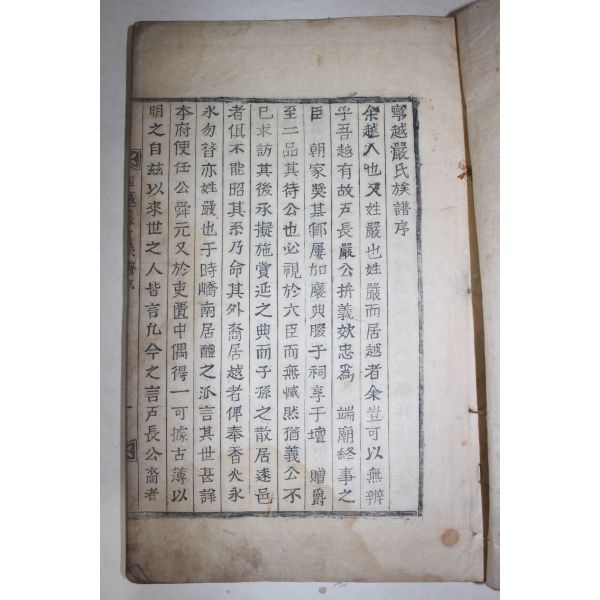 寧越嚴氏族譜序
余越人也又姓嚴也姓嚴而居越者余豈可以無辨
乎吾越有故戶長嚴公拚義效忠爲 端廟終事之
臣 朝家奬其節屢加褒典腏于祠享于壇 贈爵
至二品其待公也必視於六臣而無憾然猶義公不
已求訪其後承擬施賞延之典而子孫之散居遠邑
者俱不能昭其系乃命其外裔居越者俾奉香火永
永勿替亦姓嚴也于時嶠南居醴之派言其世甚詳
李府使任公舜元又於吏匱中偶得一可據古薄以
明之自玆以來世之人皆言凡今之言戶長公裔者